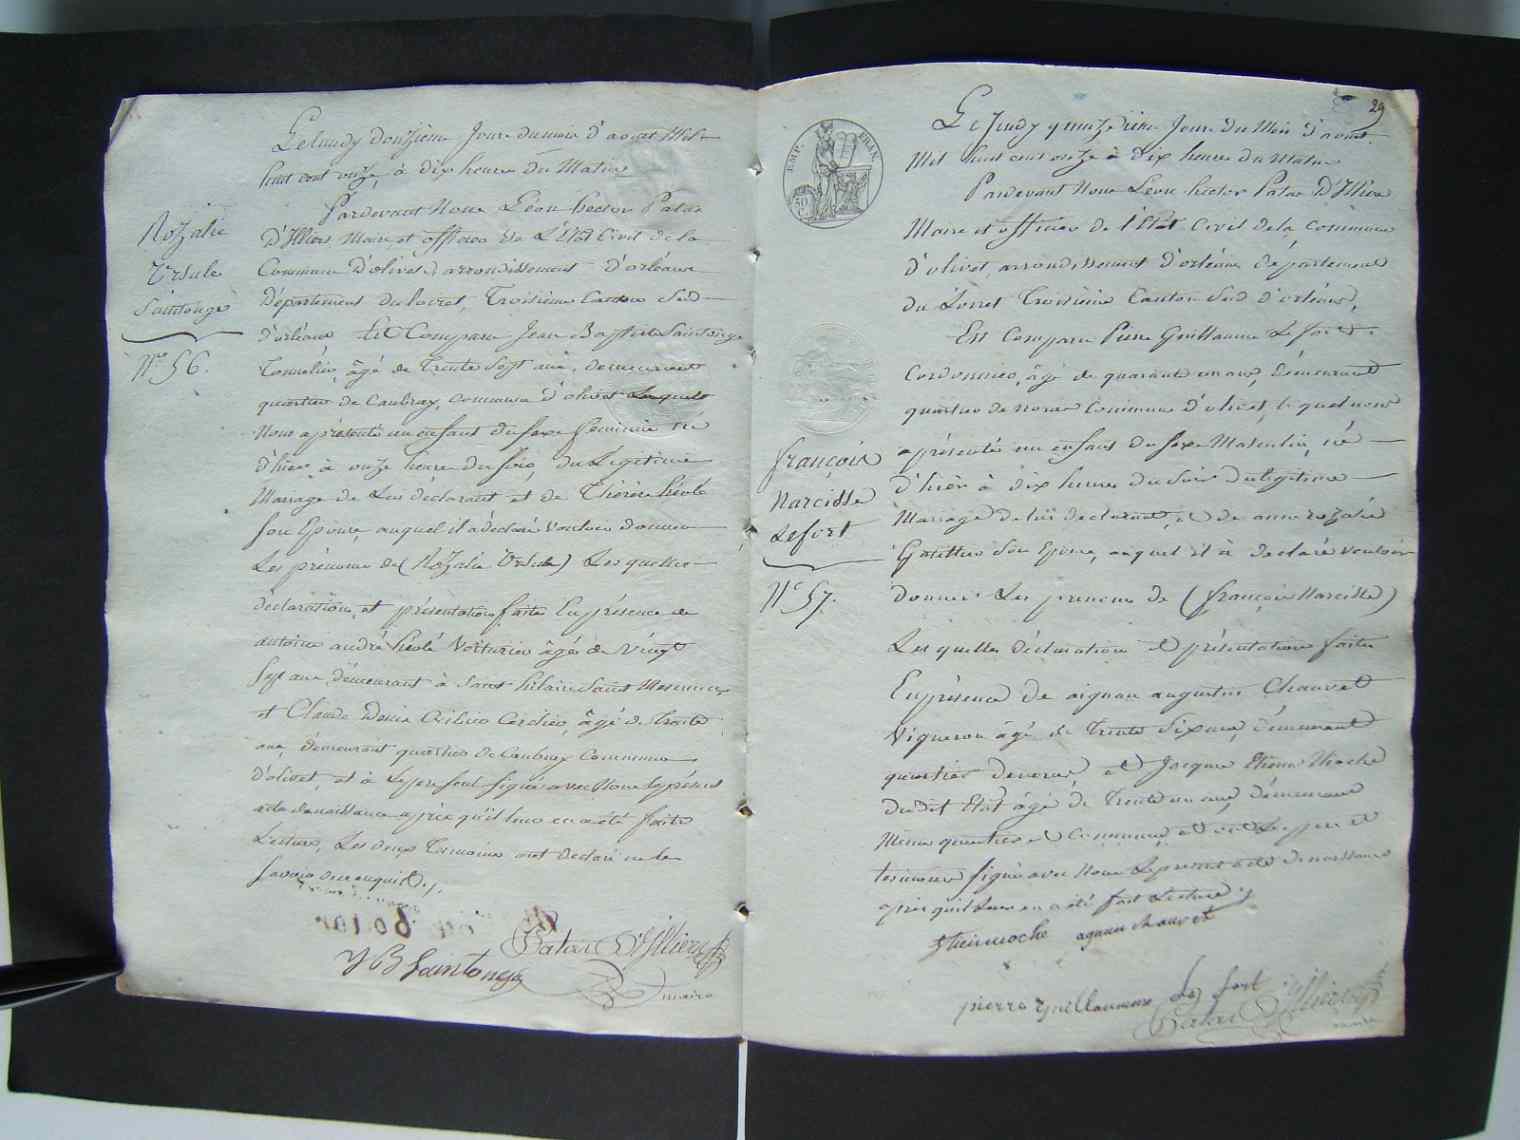 Le lundy douzieme Jour du mois d'aout Mil
huit cent onze, à dix heures du Matin
Pardevant Nous Léon hector Patas
D'Illiers Maire et officier de L'Etat Civil de la
Commune d'olivet arrondissement d'orléans
Département du Loiret, Troisième Canton Sud
d'orléans Est Comparu Jean Baptiste Saintonge
Tonnelier, âgé de Trente Sept ans, demeurant
quartier de Caubray, commune d'olivet Lequel
Nous a présenté un enfant du sexe féminin né
d'hier à onze heures du soir, du Légitime
Mariage de Lui déclarant et de Thérèse hévole
son Epouse, auquel il a déclaré vouloir donner
Les prénoms de (Rozalie Ursule) Les quelles
déclaration, et présentation faites En présence de
antoine andré Voiturier âgé de vingt
Sept ans, demeurant à Saint hilaire Saint Mesmin
et Claude Denis Cerclier, âgé de trente
ans, demeurant quartier de Caubray Commune
d'olivet, et à Le pere seul signé avec Nous le présent
acte de naissance après qu'il leur en a été faite
Lecture, Les deux Temoins ont declaré ne le
savoir de ce enquis
Rozalie
Ursule
Saintonge
N° 56.
J B Saintonge
Patas D'Illiers
maire
29
EMP. FRAN.
50 C
Le Jeudy quinzième Jour du Mois d'aout
Mil huit cent onze à Dix heures du Matin
Pardevant Nous Léon hector Patas D'Illiers
Maire et officier de l'Etat Civil de la Commune
d'olivet, arrondissement d'orléans département
du Loiret Troisième Canton Sud d'orléans,
Est Comparu Pierre Guillaume Lefort
Cordonnier, âgé de quarante un ans, Demeurant
quartier de Commune d'olivet, lequel nous
a présenté un enfant du sexe Masculin, né
d'hier à dix heures du soir du légitime
Mariage de lui declarant, et de anne rozalie
son Epouse, auquel il à declaré vouloir
donner Les prenoms de (françois Narcisse)
Les quelles déclaration et présentation faites
En présence de aignan augustin Chauvet
Vigneron âgé de Trente Six ans, demeurant
quartier et Jacque Etienne Moche
dudit Etat âgé de Trente un ans, demeurant
Même quartier et Commune, et ont Le pere et
temoins signé avec Nous Le present acte de naissance
après quil Leur en a été fait Lecture
françois
Narcisse
Lefort
N° 57.
Etien moche agnan chauvet
pierre guillaumme Le fort
Patas D'Illiers
maire